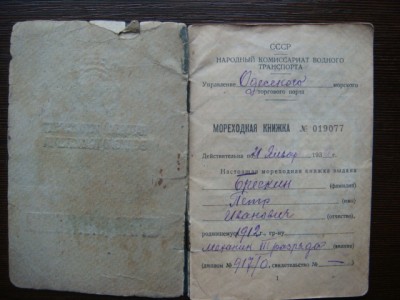 СССР
НАРОДНЫЙ КОМИССАРИАТ ВОДНОГО
ТРАНСПОРТА
Управление Одесского морского
торговый парод
МОРЕХОДНАЯ КНИЖКА № 019077
Действительна по 21 193
Настоящая мореходная книжка выдана
Брескин (фамилия)
Петр (имя)
Иванович (отчество),
родившемуся 1912 г.
механик 3 разряда (звание)
(диплом № 917/0 (свидетельство № —)
1